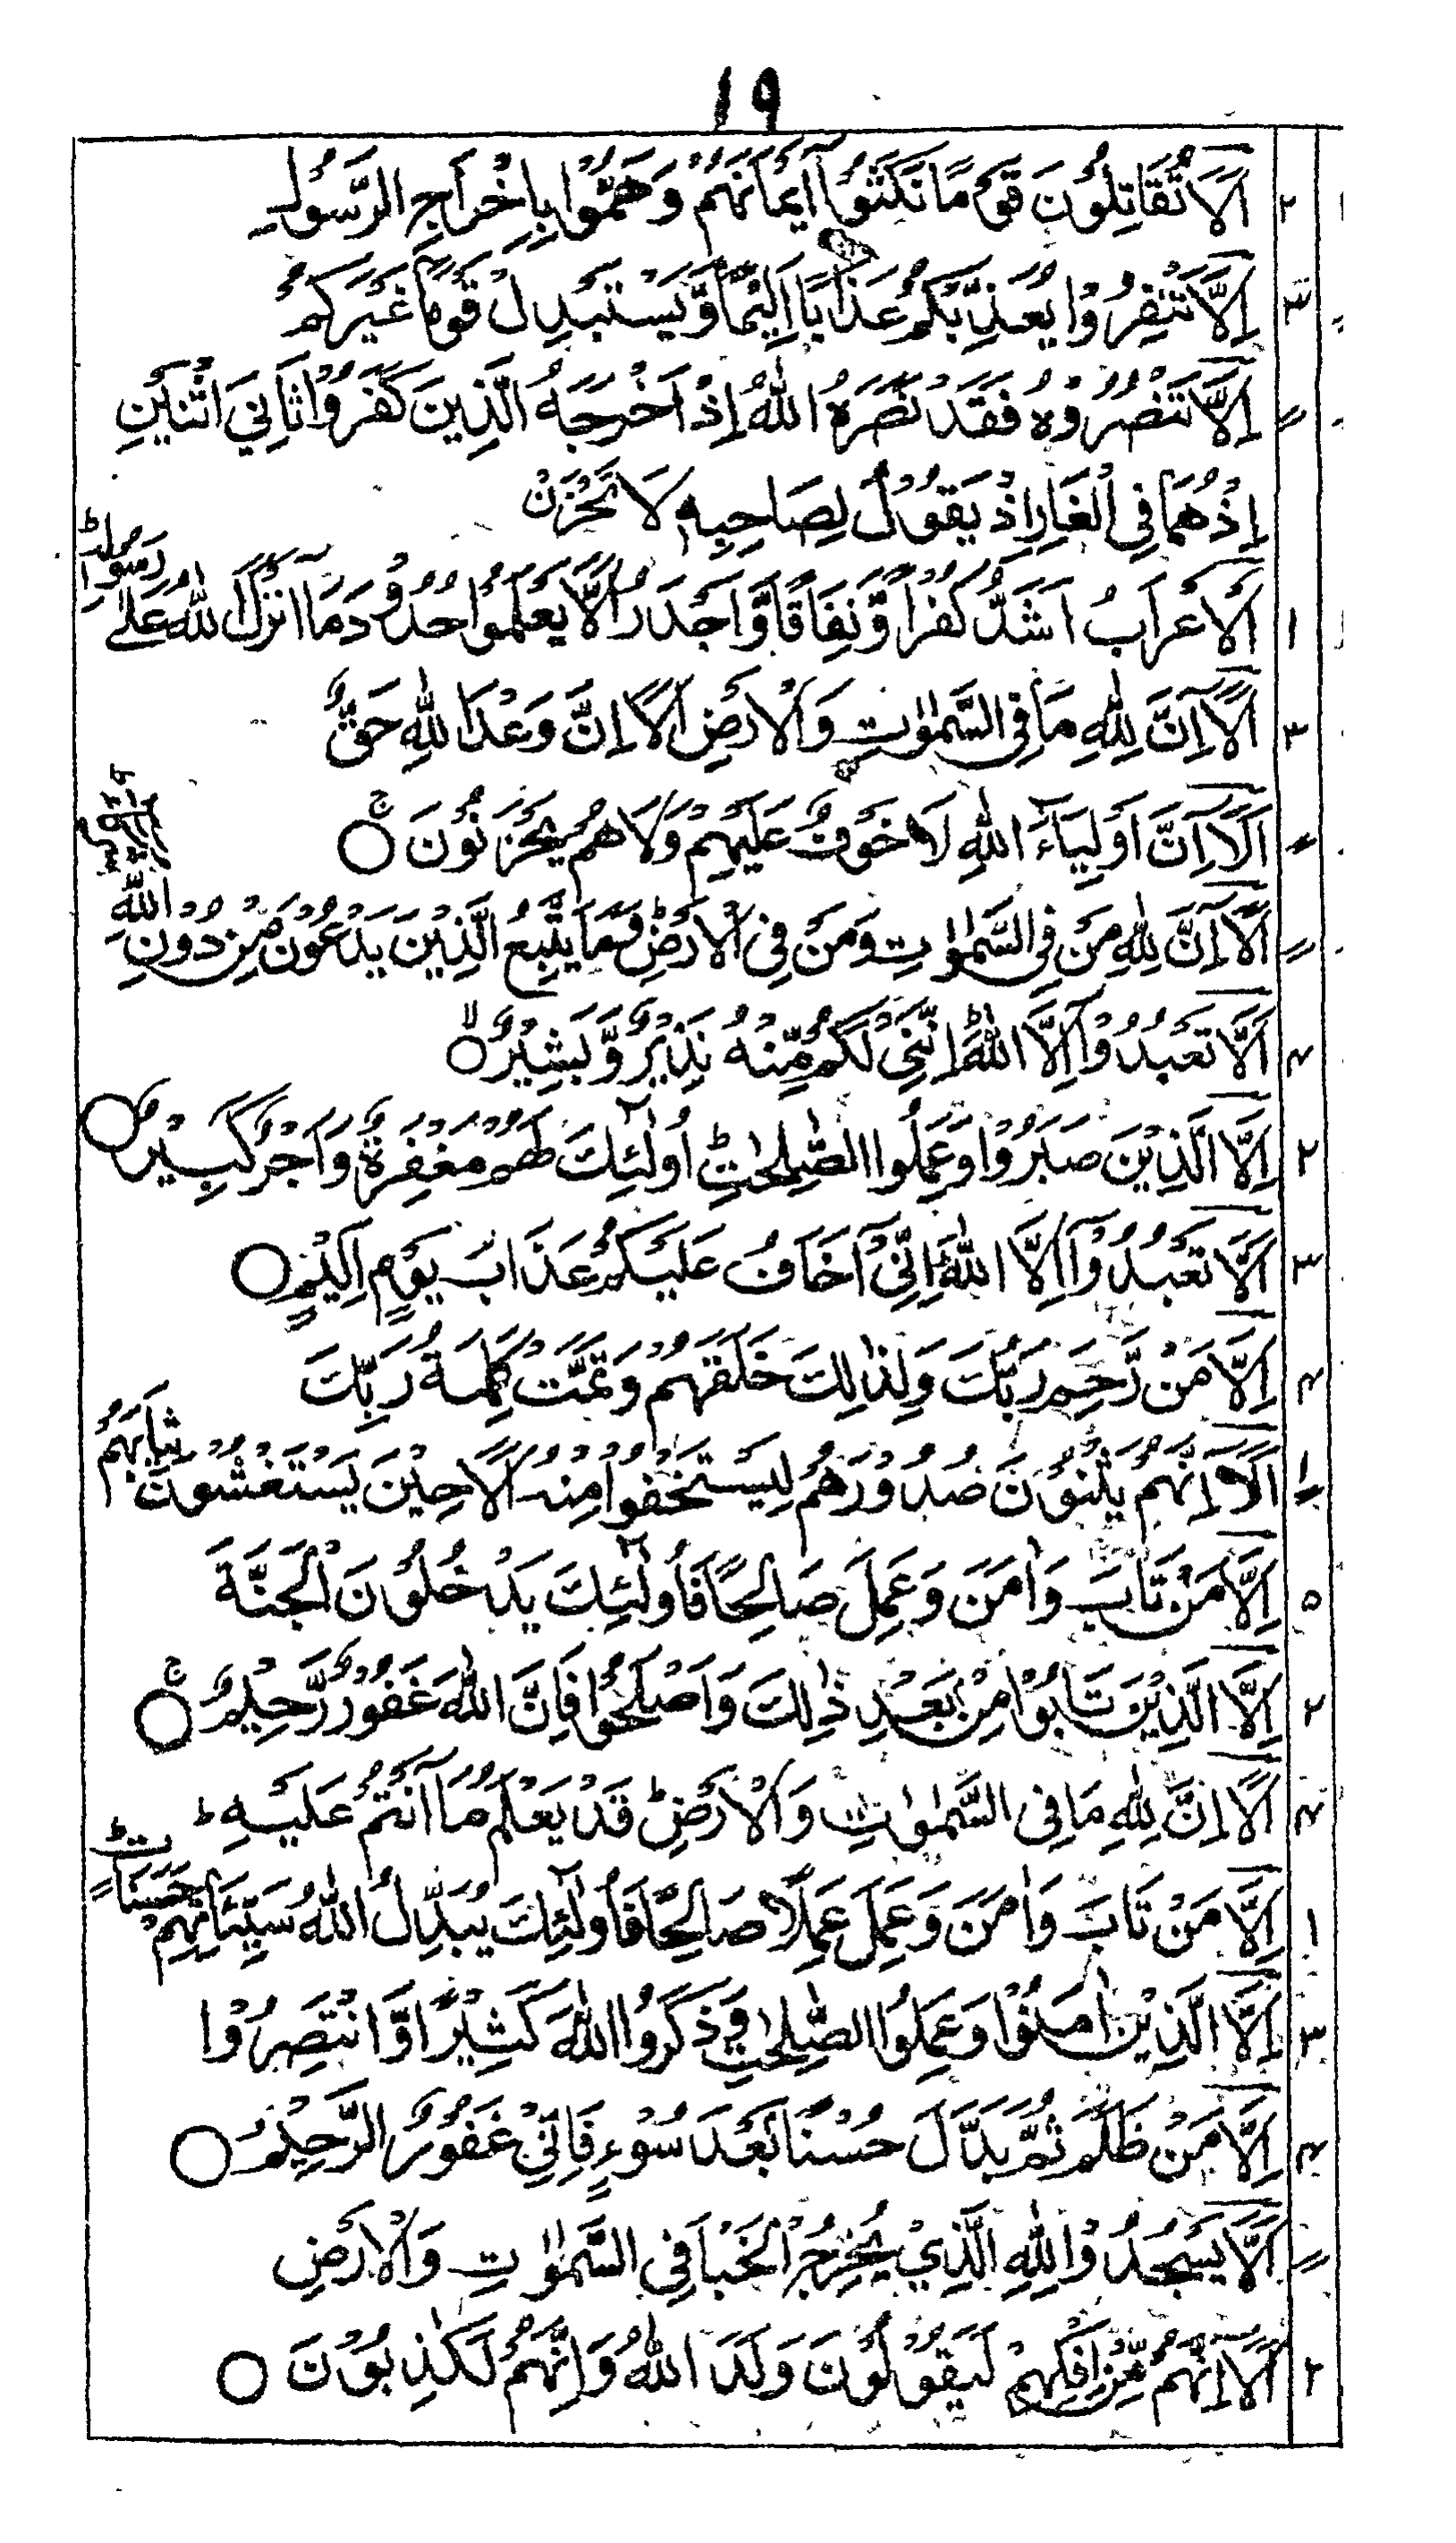 ١٩
اَلَا تُقَاتِلُوْنَ قَوْمًا نَّكَثُوْٓا اَيْمَانَهُمْ وَهَمُّوْا بِاِخْرَاجِ الرَّسُوْلِ ٢
اِلَّا تَنْفِرُوْا يُعَذِّبْكُمْ عَذَابًا اَلِيْمًا وَّيَسْتَبْدِلْ قَوْمًا غَيْرَكُمْ ٣
اِلَّا تَنْصُرُوْهُ فَقَدْ نَصَرَهُ اللّٰهُ اِذْ اَخْرَجَهُ الَّذِيْنَ كَفَرُوْا ثَانِيَ اثْنَيْنِ
اِذْ هُمَا فِي الْغَارِ اِذْ يَقُوْلُ لِصَاحِبِهٖ لَا تَحْزَنْ
اَلْاَعْرَابُ اَشَدُّ كُفْرًا وَّنِفَاقًا وَّاَجْدَرُ اَلَّا يَعْلَمُوْا حُدُوْدَ مَا اَنْزَلَ اللّٰهُ عَلٰى رَسُوْلِهٖ ط ١
اَلَآ اِنَّ لِلّٰهِ مَا فِي السَّمٰوٰتِ وَالْاَرْضِ اَلَا اِنَّ وَعْدَ اللّٰهِ حَقٌّ ٣
اَلَآ اِنَّ اَوْلِيَآءَ اللّٰهِ لَا خَوْفٌ عَلَيْهِمْ وَلَا هُمْ يَحْزَنُوْنَ ج ○
اَلَآ اِنَّ لِلّٰهِ مَنْ فِي السَّمٰوٰتِ وَمَنْ فِي الْاَرْضِ ط وَمَا يَتَّبِعُ الَّذِيْنَ يَدْعُوْنَ مِنْ دُوْنِ اللّٰهِ
اَلَّا تَعْبُدُوْٓا اِلَّا اللّٰهَ ط اِنَّنِيْ لَكُمْ مِّنْهُ نَذِيْرٌ وَّبَشِيْرٌ لا ○ ٤
اِلَّا الَّذِيْنَ صَبَرُوْا وَعَمِلُوا الصّٰلِحٰتِ ط اُولٰٓئِكَ لَهُمْ مَغْفِرَةٌ وَاَجْرٌ كَبِيْرٌ ○ ٢
اَلَّا تَعْبُدُوْٓا اِلَّا اللّٰهَ ط اِنِّيْٓ اَخَافُ عَلَيْكُمْ عَذَابَ يَوْمٍ اَلِيْمٍ ○ ٣
اِلَّا مَنْ رَّحِمَ رَبُّكَ وَلِذٰلِكَ خَلَقَهُمْ وَتَمَّتْ كَلِمَةُ رَبِّكَ ٤
اَلَآ اِنَّهُمْ يَثْنُوْنَ صُدُوْرَهُمْ لِيَسْتَخْفُوْا مِنْهُ اَلَا حِيْنَ يَسْتَغْشُوْنَ ثِيَابَهُمْ ١
اِلَّا مَنْ تَابَ وَاٰمَنَ وَعَمِلَ صَالِحًا فَاُولٰٓئِكَ يَدْخُلُوْنَ الْجَنَّةَ ٥
اِلَّا الَّذِيْنَ تَابُوْا مِنْ بَعْدِ ذٰلِكَ وَاَصْلَحُوْا فَاِنَّ اللّٰهَ غَفُوْرٌ رَّحِيْمٌ ج ○ ٢
اَلَا اِنَّ لِلّٰهِ مَا فِي السَّمٰوٰتِ وَالْاَرْضِ ط قَدْ يَعْلَمُ مَا اَنْتُمْ عَلَيْهِ ط ٤
اِلَّا مَنْ تَابَ وَاٰمَنَ وَعَمِلَ عَمَلًا صَالِحًا فَاُولٰٓئِكَ يُبَدِّلُ اللّٰهُ سَيِّئَاتِهِمْ حَسَنَاتٍ ط ١
اِلَّا الَّذِيْنَ اٰمَنُوْا وَعَمِلُوا الصّٰلِحٰتِ وَذَكَرُوا اللّٰهَ كَثِيْرًا وَّانْتَصَرُوْا ٣
اِلَّا مَنْ ظَلَمَ ثُمَّ بَدَّلَ حُسْنًا بَعْدَ سُوْءٍ فَاِنِّيْ غَفُوْرٌ الرَّحِيْمُ ○ ٤
اَلَّا يَسْجُدُوْا لِلّٰهِ الَّذِيْ يُخْرِجُ الْخَبْاَ فِي السَّمٰوٰتِ وَالْاَرْضِ
اَلَا اِنَّهُمْ مِّنْ اِفْكِهِمْ لَيَقُوْلُوْنَ وَلَدَ اللّٰهُ وَاِنَّهُمْ لَكٰذِبُوْنَ ○ ٢